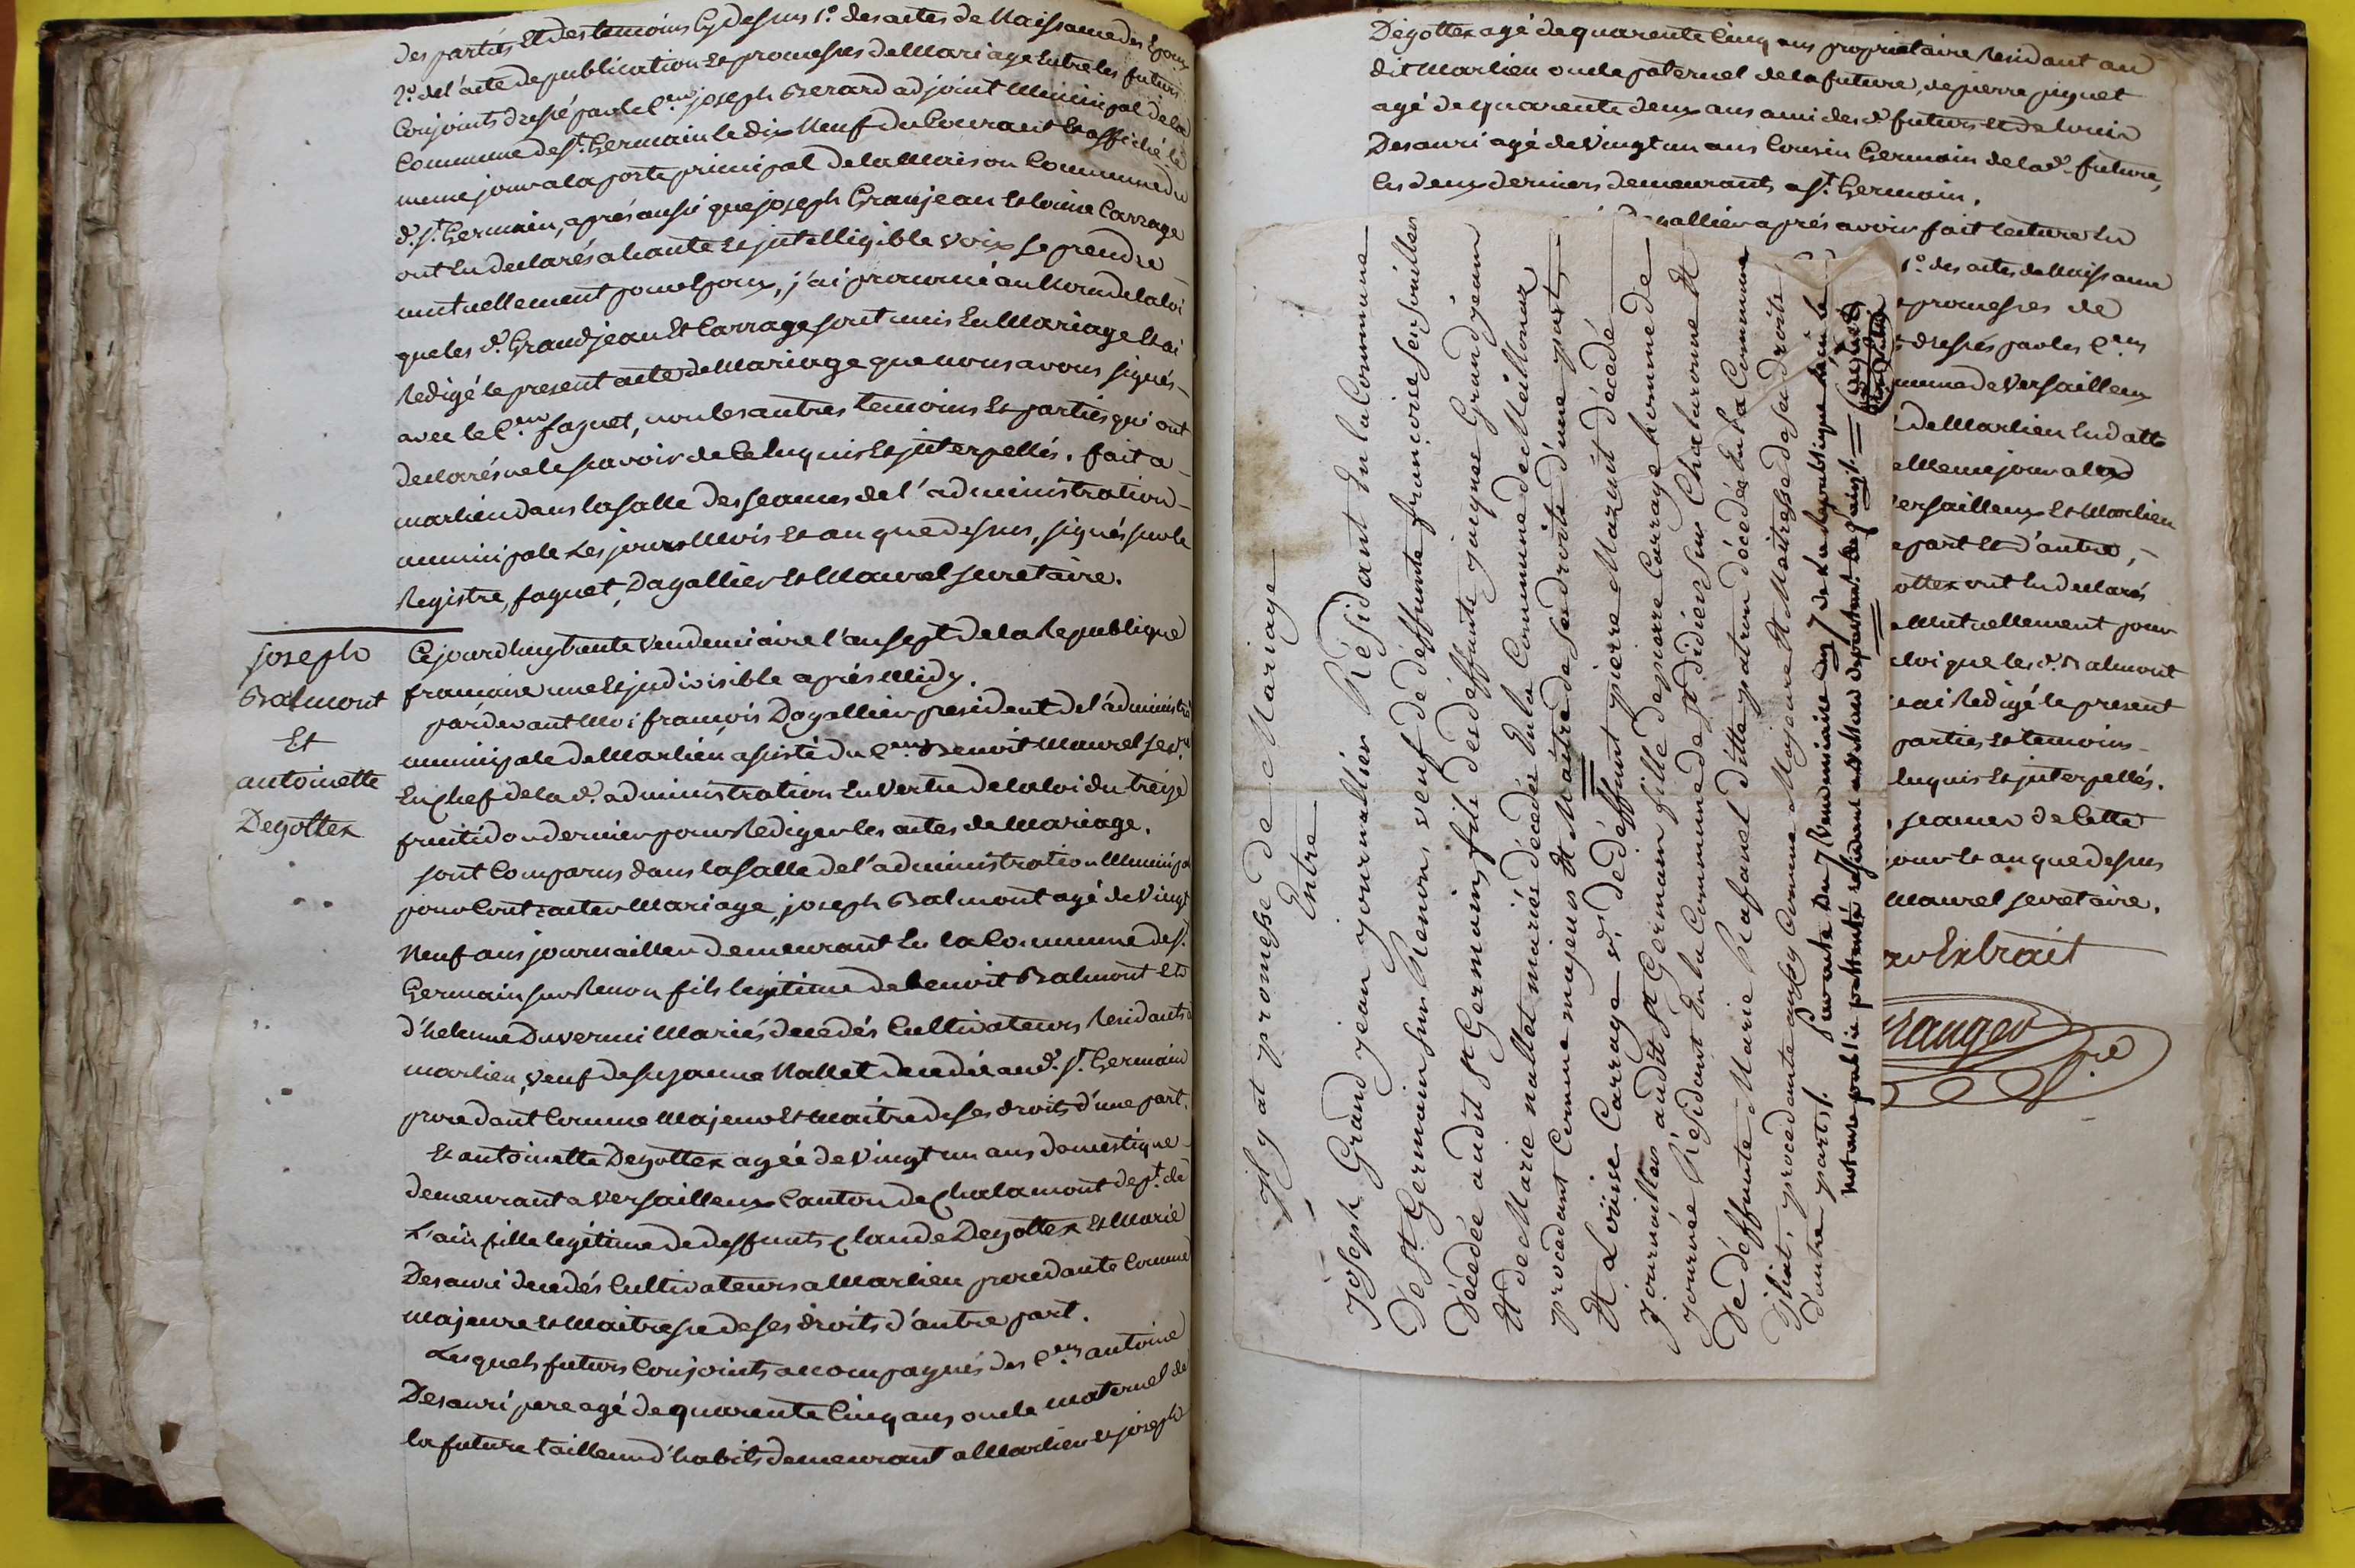 des parties Et des temoins Cy dessus 1.° des actes de Naissance des Epoux
2.° de l'acte de publication Et promesses de Mariage Entre les futurs
Conjoints dressé par le C.en joseph Berard adjoint Municipal de la
Commune de s.t Germain le dix Neuf du Courant Et affiché le
meme jour a la porte principal de la Maison Commune du
d. s.t Germain, aprés aussi que joseph Granjean Et loüise Carrage
ont Eu declarés a haute Et jntelligible voix se prendre
mutuellement pour Epoux, j'ai prononcé au Nom de la loi
que les d. Grandjean Et Carrage sont unis En Mariage Et ai
Redigé le present acte de Mariage que nous avons signés
avec le C.en faguet, non les autres temoins Et parties qui ont
declarés ne le scavoir de Ce Enquis Et jnterpellés. fait a
marlieu dans la salle des seances de l'administration
municipale Les jour Mois Et an que dessus, signés sur le
Registre, faguet, Dagallier Et Maurel secretaire.
joseph
Balmont
Et
antoinette
Degottex
Cejourd'huy trente vendemiaire l'an sept de la Republique
francaise une Et jndivisible aprés Midy.
pardevant Moi françois Dagallier president de l'administra
municipale de Marlieu, assisté du C.en Benoit Maurel secr.
En chef de la d. administration En Vertu de la loi du treize
fruitidor dernier pour Rediger les actes de Mariage.
sont Comparus dans la salle de l'administration Municipa
pour Contracter Mariage, joseph Balmont agé de Vingt
Neuf ans journailler demeurant En la Commune de s.t
Germain sur Renon fils legitime de benoit Balmont Et
d'helenne Duverni Mariés decedés Cultivateurs Residants a
marlieu, veuf de suzanne Nallet decedée au d. s.t Germain
procedant Comme Majeur Et Maitre de ses droits d'une part.
Et antoinette Degottex agée de Vingt un ans domestique
demeurant a Versailleux Canton de Chalamont dep.t de
L'ain fille legitime de deffunts Claude Degottex Et Marie
Desauri decedés Cultivateurs a Marlieu procedante Comme
majeure Et Maitresse de ses droits d'autre part.
Lesquels futurs Conjoints accompagnés des C.ens antoine
Desauri pere agé de quarente Cinq ans oncle maternel de
la future tailleur d'habits demeurant a Marlieu Et joseph
Degottex agé de quarente Cinq ans proprietaire Residant au
dit Marlieu oncle paternel de la future, de pierre piquet
agé de quarente deux ans ami des d. futurs Et de louis
Desauri agé de Vingt un ans Cousin Germain de la d. future,
les deux derniers demeurants a s.t Germain.
Dagallier aprés avoir fait lecture En
1.° des actes de Naissance
promesses de
dressés par les C.ens
mmune de Versailleux
de Marlieu En datte
Meme jour a la
ersailleux Et Marlieu
part Et d'autre,
ottex ont Eu declarés
Mutuellement pour
loi que les d. Balmont
ai Redigé le present
parties Et temoins
Enquis Et jnterpellés.
seances de Cette
jour Et an que dessus
Maurel secretaire.
Extrait
jl y at promesse de Mariage
Entre
joseph Grand jean journallier Résidant En la Commune
De s.t Germain sur Renon, veuf de déffunte francoise serfouilleu
Décedée audit s.t Germain, fils des deffunts jacques Grand jean
Et de Marie nallet mariés décedés En la Commune de Meillonaz
procedant Comme majeur Et Maitre de ses droits d'une part,
Et Loüise Carrage v.e de déffunt pierre Mazuit décedé
journaillier audit s.t Germain fille de pierre Carrage homme de
journée Résidant En la Commune de s.t didier sur Chalaronne Et
De déffunte Marie Peafanel ditte patron décedée En la Commune
D'jlliat, procedante aussy Comme Majeure Et Maitresse de ses droits
D'autre part.
notaire public patenté residant